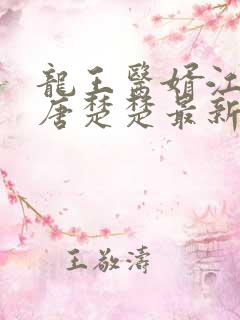 龍王醫婿江
唐楚楚最新
王敬濤